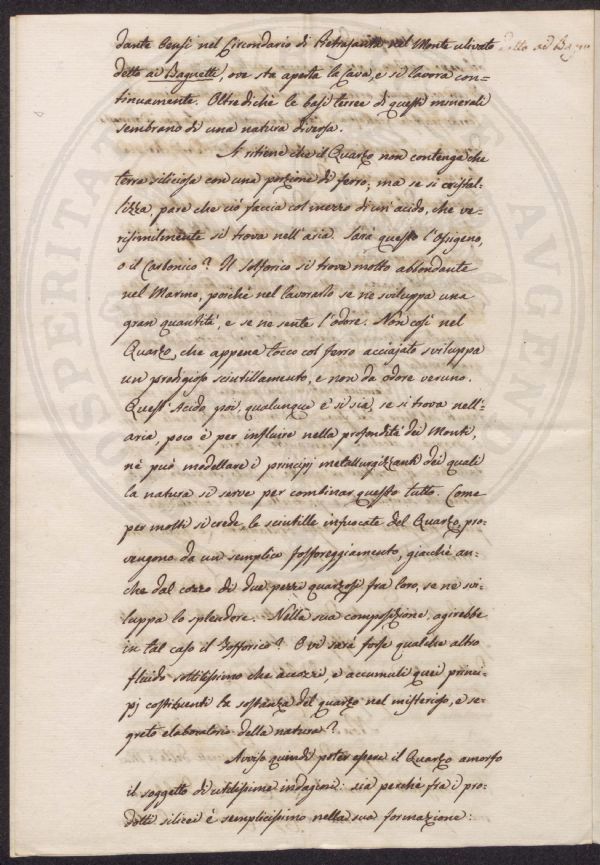 dante Pensi nel Circondario di Pietrasanta nel Monte ulivato
detto ai Bagnetti, ove sta aperta la Cava, e si lavora con=
tinuamente. Oltredichè le basi terree di questi minerali
sembrano di una natura diversa.
Si ritiene che il Quarzo non contenga che
terra siliciosa con una porzione di ferro; ma se si cristal=
lizza, pare che ciò faccia col mezzo di un'acido, che ve=
risimilmente si trova nell'aria. Sarà questo l'Ossigeno,
o il Carbonico? Il Solforico si trova molto abbondante
nel Marmo, poichè nel lavorarlo se ne sviluppa una
gran quantità, e se ne sente l'odore. Non così nel
Quarzo, che appena tocco col ferro acciajato sviluppa
un prodigioso scintillamento, e non dà odore veruno.
Quest'Acido poi, qualunque e' si sia, se si trova nell'=
aria, poco è per influire nella profondità dei Monti,
nè può modellare i principj metallurgizzanti dei quali
la natura si serve per combinar questo tutto. Come
per molti si crede, le scintille infuocate del Quarzo pro=
vengono da un semplice fosforeggiamento, giacchè an=
che dal cozzo di due pezzi quarzosi fra loro, se ne svi=
luppa lo splendore. Nella sua composizione agirebbe
in tal caso il Fosforico? O vi sarà forse qualche altro
fluido sottilissimo che accozzi, e accumuli quei princi=
pj costituenti la sostanza del quarzo nel misterioso, e se=
greto elaboratorio della natura?
Avviso quindi poter essere il Quarzo amorfo
il soggetto di utilissime indagini: sia perchè fra i pro=
dotti silicei è semplicissimo nella sua formazione:
detto ai Bagn